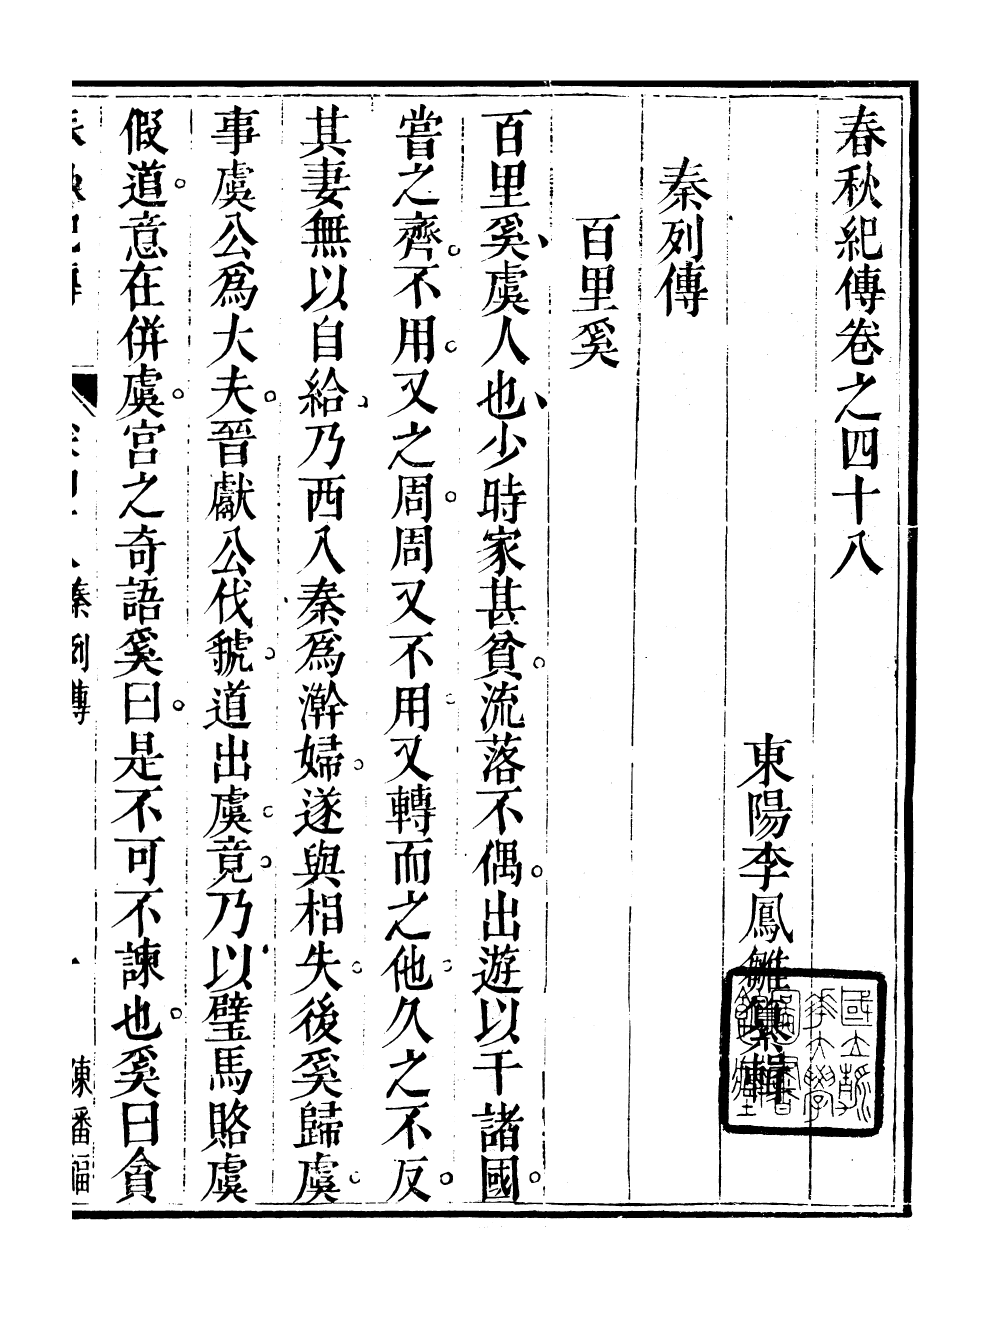 春秋紀傳卷之四十八
東陽李鳳雛纂輯
秦列傳
百里奚
百里奚、虞人也、少時家甚貧。流落不偶。出遊以干諸國。
嘗之齊。不用。又之周。周又不用。又轉而之他。久之不反。
其妻無以自給、乃西入秦爲澣婦。遂與相失。後奚歸虞。
事虞公爲大夫。晉獻公伐虢。道出虞。竟乃以璧馬賂虞
假道。意在併虞。宮之奇語奚曰。是不可不諫也。奚曰貪
秦列傳
國立清華大學圖書館藏